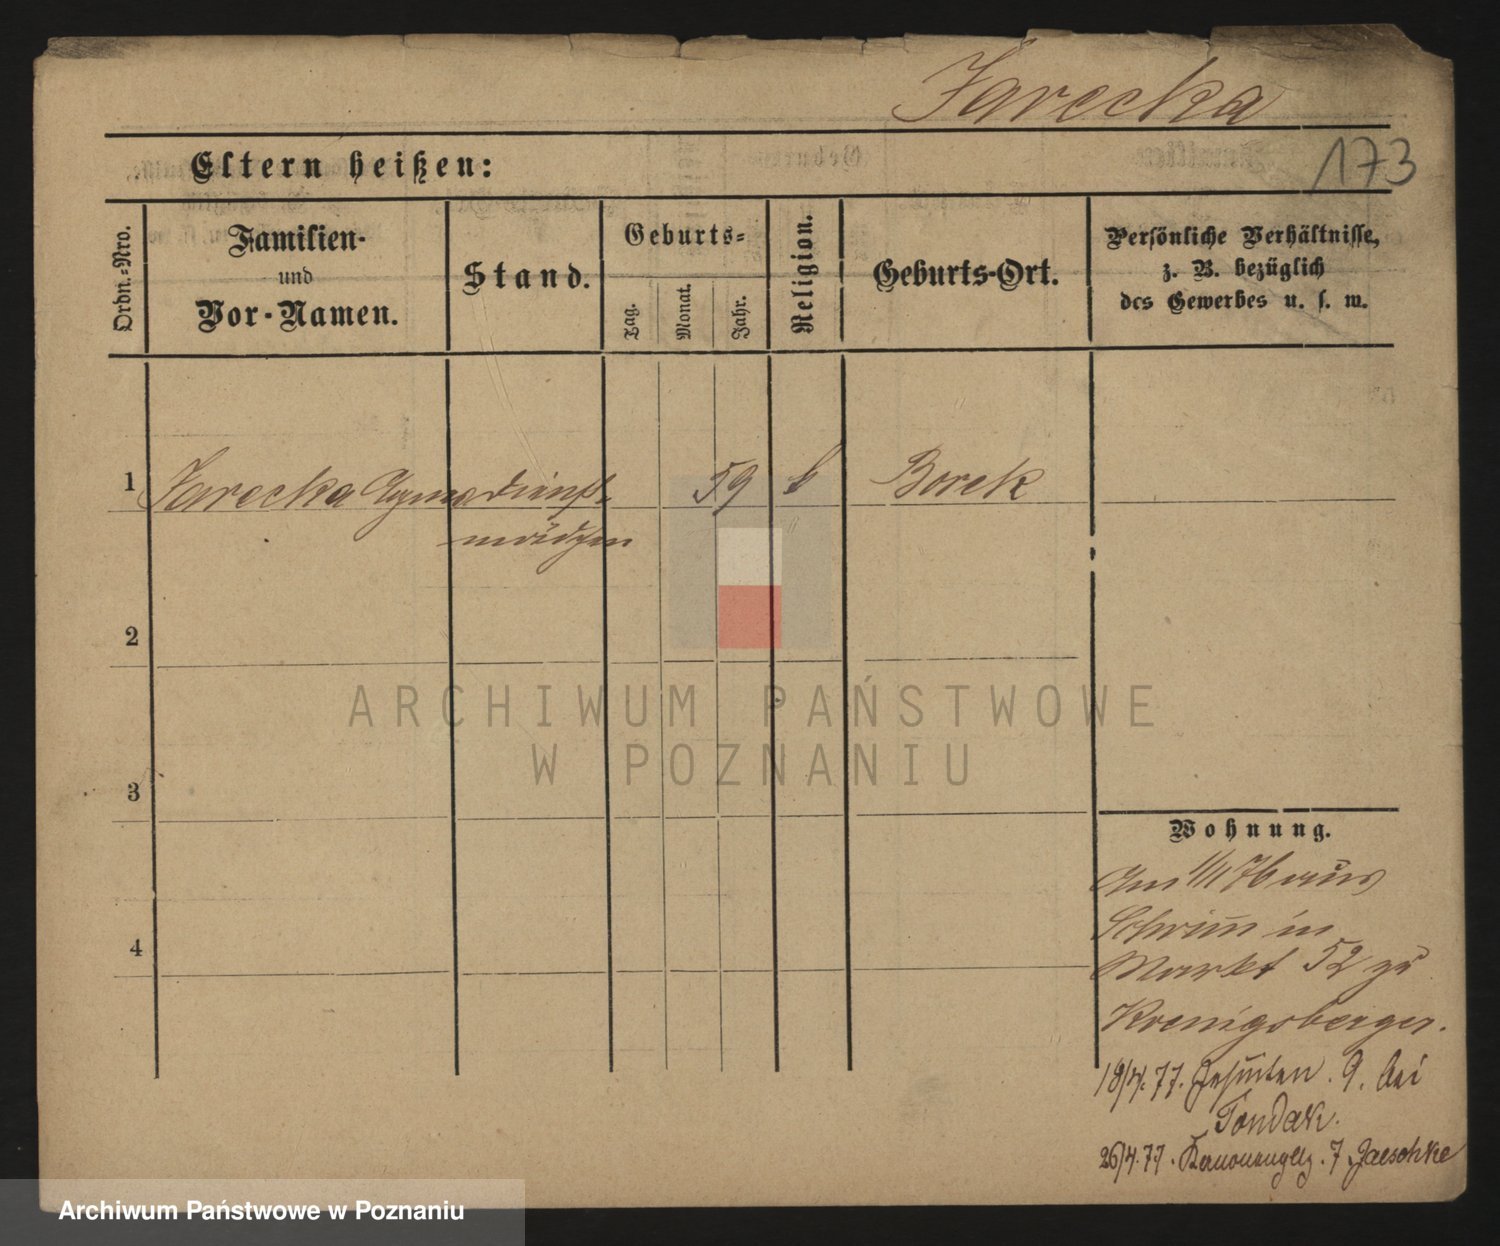 Jarecka
173
Eltern heißen:
Ordn.-Nro.
Familien-
und
Vor-Namen.
Stand.
Geburts-
Tag.
Monat.
Jahr.
Religion.
Geburts-Ort.
Persönliche Verhältnisse,
z. B. bezüglich
des Gewerbes u. s. w.
1 Jarecka Agnes Dienst- 59 k Borek
mädchen
2
3
4
Wohnung.
Am 1/1 76 aus
Schrimm in
Markt 52 zu
Koenigsberger.
18/4.77. Jesuiten. 9. bei
Tondak.
26/4.77. 7 Jaeschke
ARCHIWUM PAŃSTWOWE
W POZNANIU
Archiwum Państwowe w Poznaniu